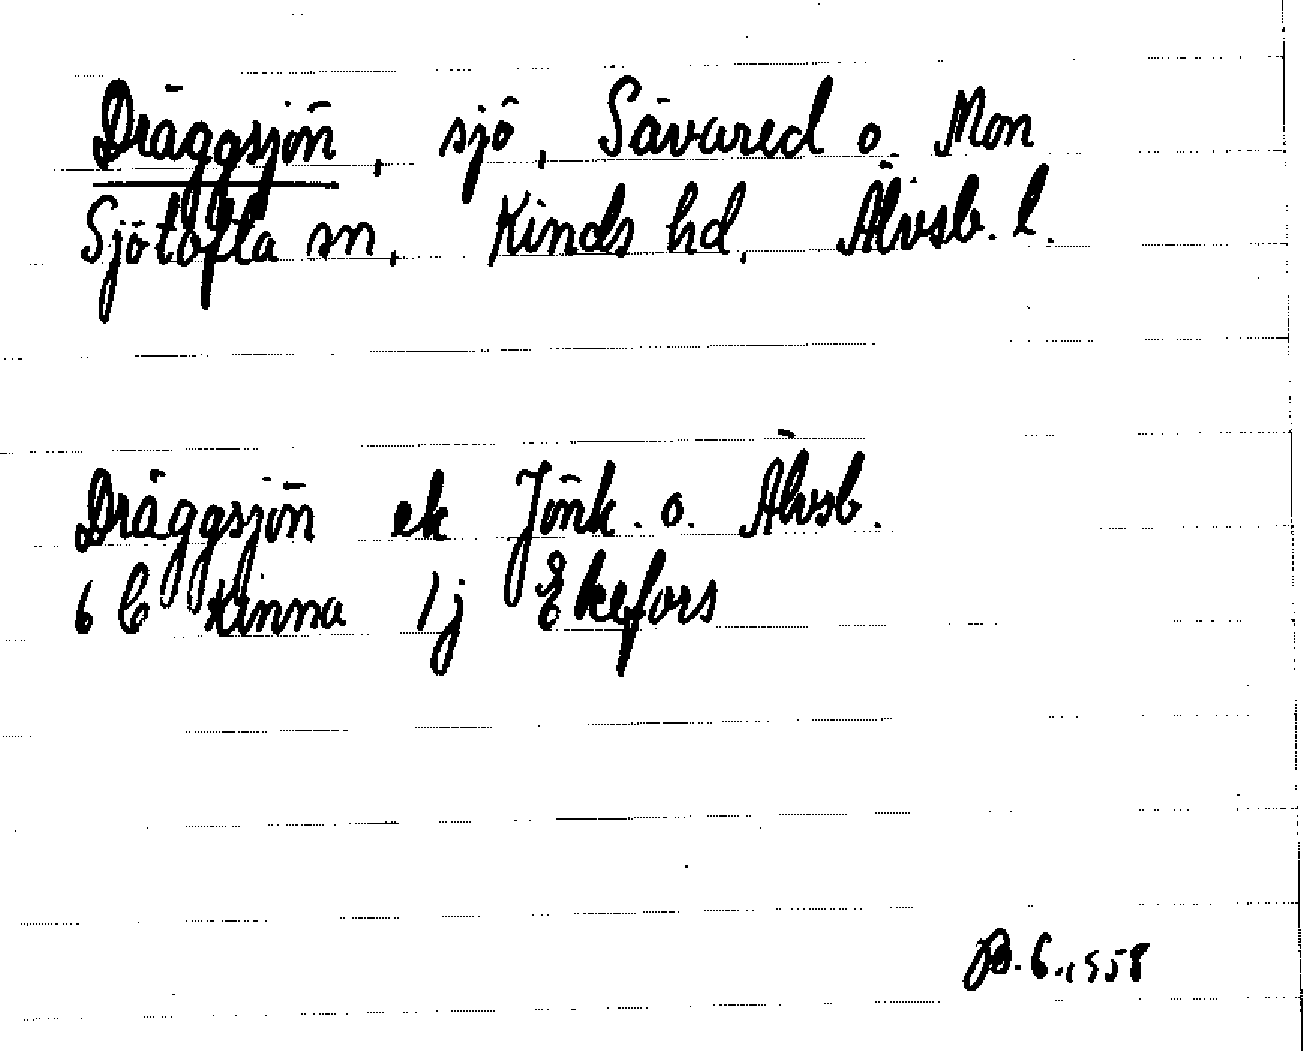 Dräggsjön, sjö, Sävared o. Mon
Sjötofta sn, Kinds hd, Älvsb. l.
Dräggsjön ek Jönk. o. Älvsb.
6 C Kinna 1j Ekefors
6.1958